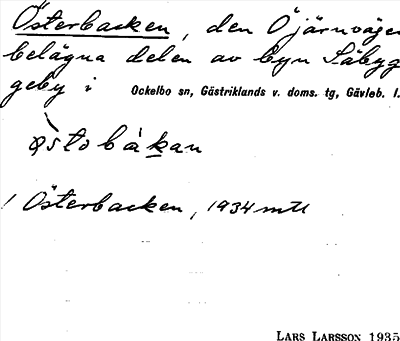 Österbacken, den Ö järnvägen
belägna delen av byn Säbyg
geby i Ockelbo sn, Gästriklands v. doms. tg, Gävleb. l.
østobåkan
1 Österbacken, 1934 mtl
LARS LARSSON 1935